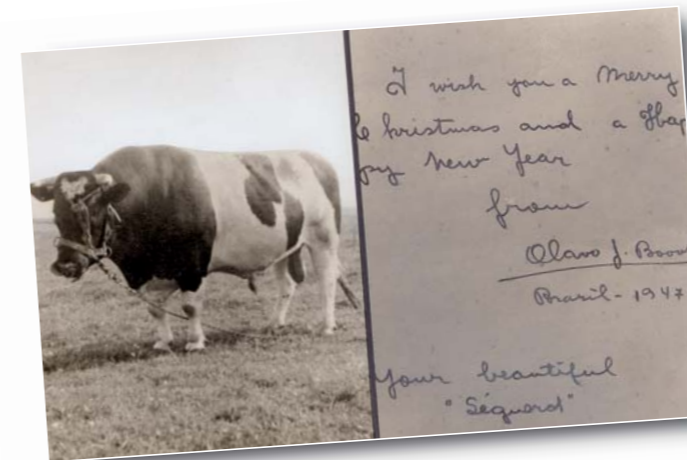 I wish you a Merry
Christmas and a Hap
py New Year
from
Olavo J.
Brasil - 1947
Your beautiful
"Séguard"